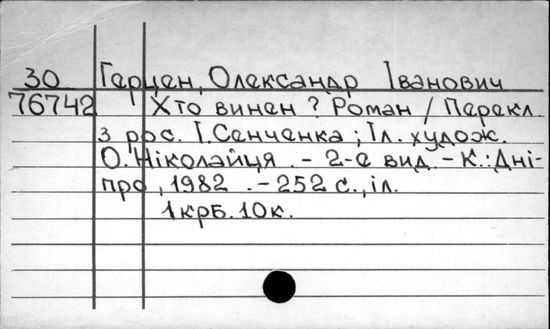 30 Герцен, Олександр Іванович
76742 Хто винен? Роман / Перекл.
з рос. І. Сенченка; Іл. худож.
О. Ніколайця. - 2-е вид. - К.: Дні-
про, 1982. - 252 с., іл.
1 крб. 10 к.